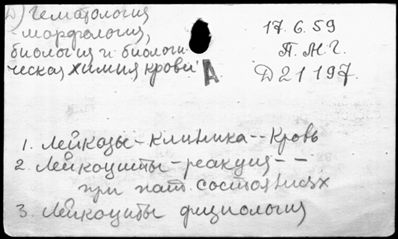 D) Гематология
-морфология,
биология и биологи-
ческая химия крови
А
17.6.59
П.М.Г.
D21197.
1. Лейкозы-клиника--кровь
2. Лейкоциты-реакция--
при пат. состояниях
3. Лейкоциты физиология